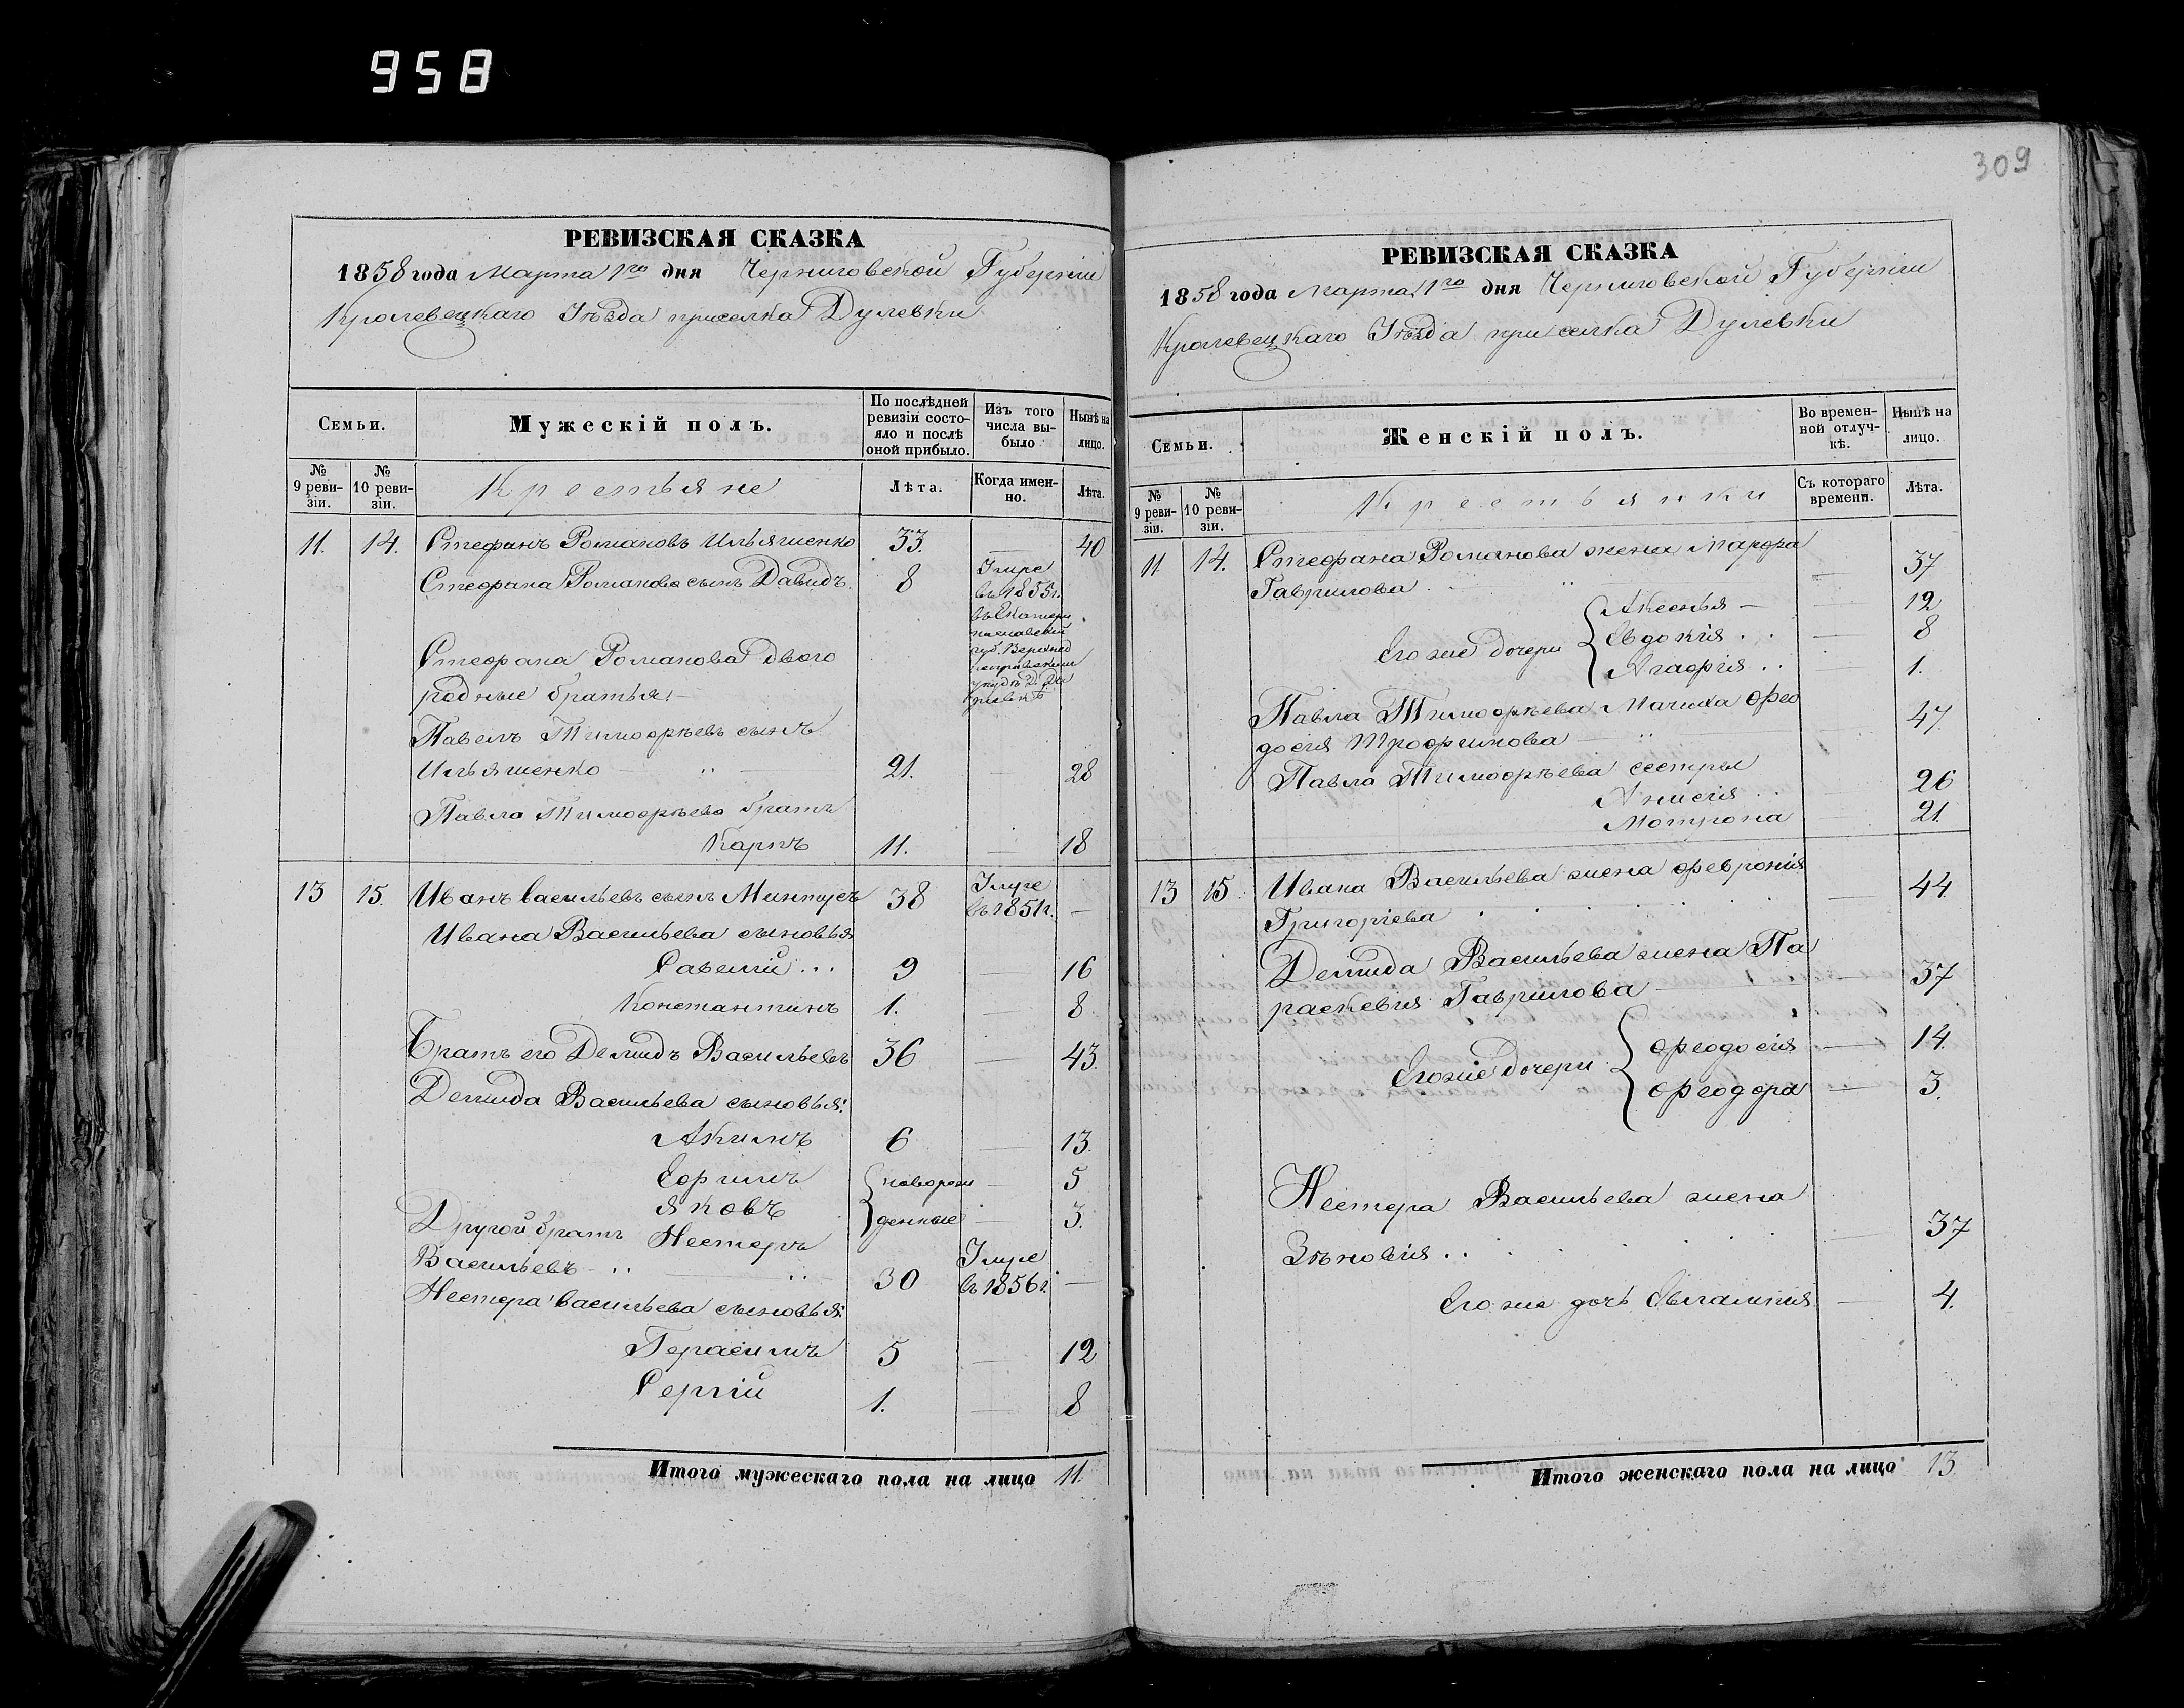 958
309
РЕВИЗСКАЯ СКАЗКА
1858 года Марта 1го дня Черниговской Губернии
Кролевецкаго Уѣзда приселка Дулевки
Семьи.
Мужескій полъ.
По послѣдней ревизіи состояло и послѣ оной прибыло.
Изъ того числа выбыло
Ныне на лицо.
№ 9 ревизіи.
№ 10 ревизіи.
Крестьяне
Лѣта.
Когда именно.
Лѣта.
11. 14. Стефанъ Романовъ Ильяшенко 33. — 40
Стефана Романова сынъ Давидъ 8 Умре въ 1855 г. въ Екатеринославской губ.
Стефана Романова двою
родные братья:
Павелъ Тимофѣевъ сынъ
Ильяшенко 21. — 28
Павла Тимофѣева братъ
Карпъ 11. — 18
13 15. Иванъ Васильевъ сынъ Минтусъ 38 Умре въ 1851 г. —
Ивана Васильева сыновья
Савелій... 9 — 16
Константинъ 1. — 8
Братъ его Демидъ Васильевъ 36 — 43.
Демида Васильева сыновья:
Акимъ 6 — 13.
Ефимъ новорож — 5
Яковъ денные — 3.
Другой братъ Нестеръ
Васильевъ 30 Умре въ 1856 г. —
Нестера Васильева сыновья:
Герасимъ 5 — 12
Сергій 1. — 8
Итого мужескаго пола на лицо 11.
РЕВИЗСКАЯ СКАЗКА
1858 года Марта 1го дня Черниговской Губерніи
Кролевецкаго Уѣзда приселка Дулевки
Семьи.
Женскій полъ.
Во временной отлучкѣ.
Нынѣ на лицо.
№ 9 ревизіи.
№ 10 ревизіи.
Крестьянки
Съ котораго времени.
Лѣта.
11 14. Стефана Романова жена Марфа
Гаврилова — 37
Аксенья — 12
Его же дочери Евдокія.. — 8
Агафія.. — 1.
Павла Тимофѣева Мачиха Фео
досія Трофимова 47
Павла Тимофѣева сестры
Анисія.. 26
Мотрона 21.
13 15. Ивана Васильева жена Февронія
Григоріева — 44.
Демида Васильева жена Па
раскевія Гаврилова — 37
Его же дочери Феодосія — 14.
Феодора — 3.
Нестера Васильева жена
Зѣновія.. — 37
Его же дочь Евгампія — 4.
Итого женскаго пола на лицо 13